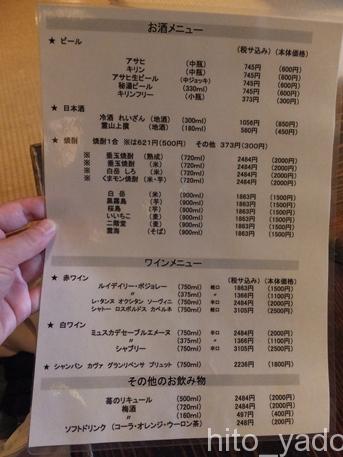 お酒メニュー
★ ビール (税サ込み) (本体価格)
アサヒ (中瓶) 745円 (600円)
キリン (中瓶) 745円 (600円)
アサヒ生ビール (中ジョッキ) 745円 (600円)
秘湯ビール (330ml) 745円 (600円)
キリンフリー (小瓶) 373円 (300円)
★ 日本酒
冷酒 れいざん (地酒) (300ml) 1056円 (850円)
霊山上撰 (地酒) (180ml) 560円 (450円)
★ 焼酎 焼酎1合 ※は621円(500円) その他 373円(300円)
※ 垂玉焼酎 (熟成) (720ml) 2484円 (2000円)
※ 垂玉焼酎 (米) (720ml) 2484円 (2000円)
※ 白岳 しろ (米) (720ml) 2484円 (2000円)
※ くまモン焼酎 (米・芋) (720ml) 2484円 (2000円)
白 岳 (米) (900ml) 1863円 (1500円)
黒霧島 (芋) (900ml) 1863円 (1500円)
桜島 (芋) (900ml) 1863円 (1500円)
いいちこ (麦) (900ml) 1863円 (1500円)
二階堂 (麦) (900ml) 1863円 (1500円)
雲海 (そば) (900ml) 1863円 (1500円)
ワインメニュー
★ 赤ワイン (税サ込み) (本体価格)
ルイデイリー・ボジョレー (750ml) 軽口 1863円 (1500円)
〃 (375ml) 〃 1366円 (1100円)
レ・タンヌ オクシタン ソーヴィニ (750ml) 辛口 2484円 (2000円)
シャトー ロスボルドス カベルネ (750ml) 軽口 3105円 (2500円)
★ 白ワイン
ミュスカデセーブルエメーヌ (750ml) 辛口 2484円 (2000円)
〃 (375ml) 〃 1366円 (1100円)
シャブリー (750ml) 辛口 3105円 (2500円)
★ シャンパン カヴァ グランリベンサ ブリュット (750ml) 2236円 (1800円)
その他のお飲み物
苺のリキュール (500ml) 2484円 (2000円)
梅酒 (720ml) 2484円 (2000円)
〃 (160ml) 497円 (400円)
ソフトドリンク (コーラ・オレンジ・ウーロン茶) 248円 (200円)
hito_yado